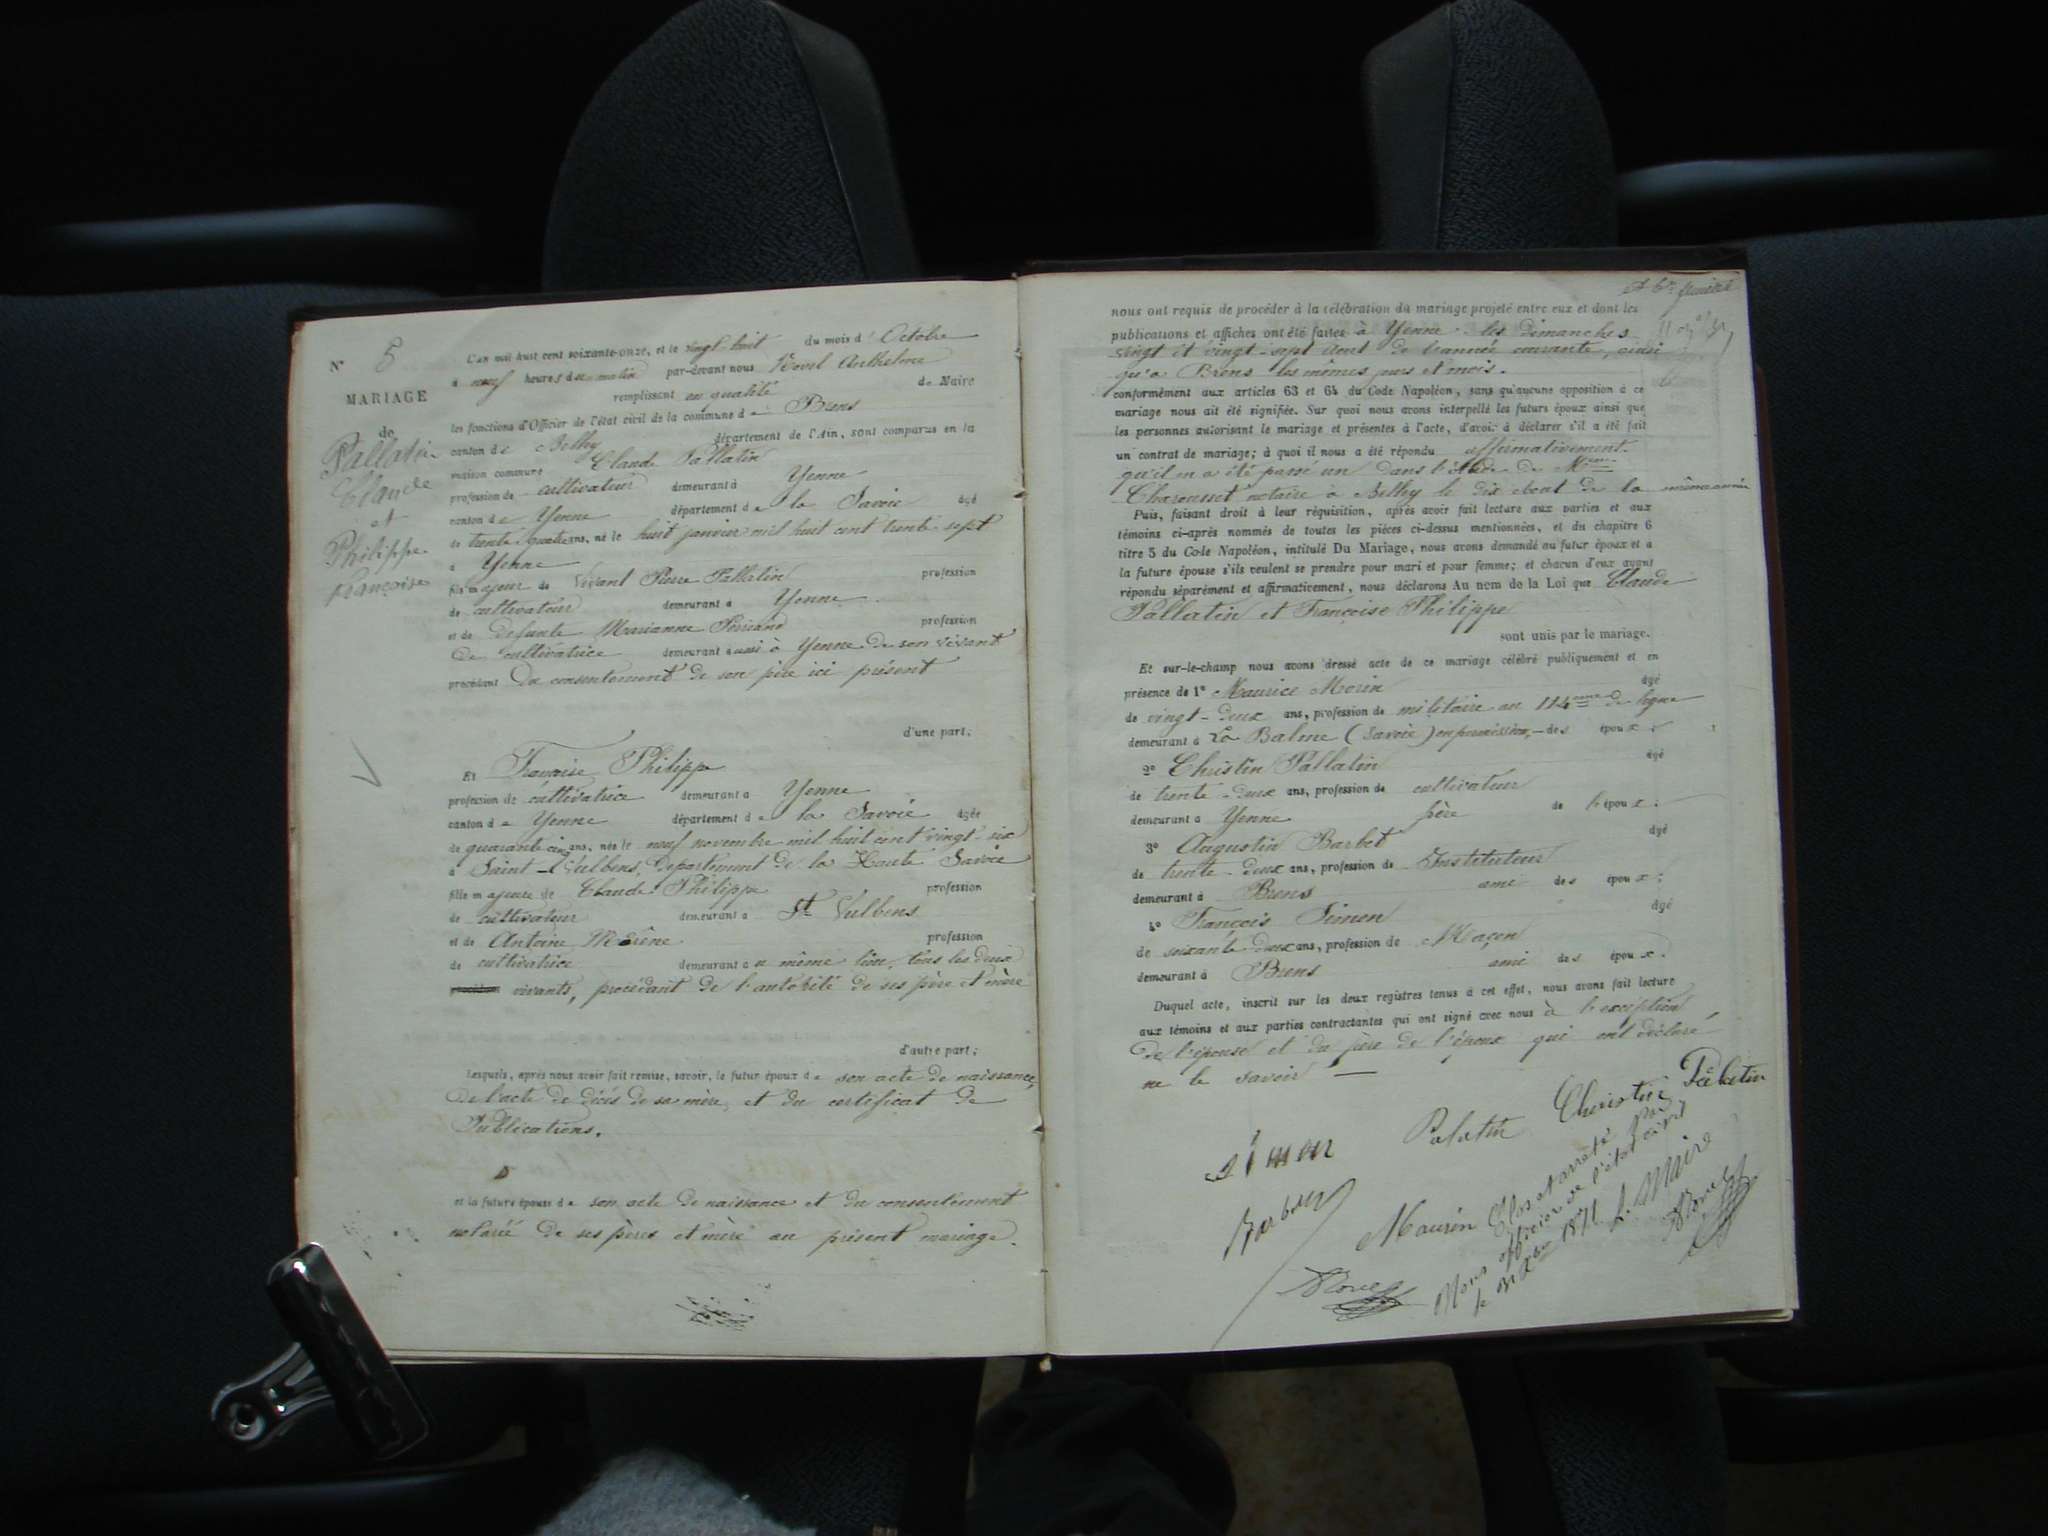 N° 5
MARIAGE
de
Pallatin
Claude
et
Philippe
Françoise
L'an mil huit cent soixante-onze, et le vingt-huit du mois d' Octobre
à neuf heures du matin par-devant nous Bovel Anthelme
remplissant en qualité de Maire
les fonctions d'Officier de l'état civil de la commune de Brens
canton de Belley département de l'Ain, sont comparus en la
maison commune Claude Pallatin
profession de cultivateur demeurant à Yenne
canton de Yenne département de la Savoie âgé
de trente quatre ans, né le huit janvier mil huit cent trente sept
à Yenne
fils majeur de vivant Pierre Pallatin profession
de cultivateur demeurant à Yenne
et de defunte Marianne Perriand profession
de cultivatrice demeurant aussi à Yenne de son vivant
procédant du consentement de son père ici présent
d'une part;
Et Françoise Philippe
profession de cultivatrice demeurant à Yenne
canton de Yenne département de la Savoie âgée
de quarante cinq ans, née le neuf novembre mil huit cent vingt-six
à Saint-Vulbens, département de la Haute Savoie
fille majeure de Claude Philippe profession
de cultivateur demeurant à St Vulbens
et de Antoine profession
de cultivatrice demeurant au même lieu, tous les deux
vivants, procédant de l'autorité de ses père et mère
d'autre part;
Lesquels, après nous avoir fait remise, savoir, le futur époux de son acte de naissance,
de l'acte de décès de sa mère, et du certificat de
Publications.
et la future épouse de son acte de naissance et du consentement
notarié de ses pères et mère au présent mariage.
nous ont requis de procéder à la célébration du mariage projeté entre eux et dont les
publications et affiches ont été faites à Yenne les dimanches
vingt et vingt-sept Aout de l'année courante, ainsi
qu'à Brens les mêmes jours et mois.
conformément aux articles 63 et 64 du Code Napoléon, sans qu'aucune opposition à ce
mariage nous ait été signifiée. Sur quoi nous avons interpellé les futurs époux ainsi que
les personnes autorisant le mariage et présentes à l'acte, d'avoir à déclarer s'il a été fait
un contrat de mariage; à quoi il nous a été répondu affirmativement
qu'il en a été passé un dans l'étude de
Charousset notaire à Belley le dix Aout de la même année
Puis, faisant droit à leur réquisition, après avoir fait lecture aux parties et aux
témoins ci-après nommés de toutes les pièces ci-dessus mentionnées, et du chapitre 6
titre 5 du Code Napoléon, intitulé Du Mariage, nous avons demandé au futur époux et à
la future épouse s'ils veulent se prendre pour mari et pour femme; et chacun d'eux ayant
répondu séparément et affirmativement, nous déclarons Au nom de la Loi que Claude
Pallatin et Françoise Philippe
sont unis par le mariage.
Et sur-le-champ nous avons dressé acte de ce mariage célébré publiquement et en
présence de 1° Maurice Morin âgé
de vingt-deux ans, profession de militaire au 114ème de ligne
demeurant à La Balme (Savoie) en permission, des époux
2° Christin Pallatin âgé
de trente-deux ans, profession de cultivateur
demeurant à Yenne frère de l'époux;
3° Augustin Barbet âgé
de trente-deux ans, profession de Instituteur
demeurant à Brens ami des époux;
4° François Simon âgé
de soixante deux ans, profession de Maçon
demeurant à Brens ami des époux.
Duquel acte, inscrit sur les deux registres tenus à cet effet, nous avons fait lecture
aux témoins et aux parties contractantes qui ont signé avec nous à l'exception
de l'épouse et du père de l'époux qui ont déclaré
ne le savoir
Simon Palatin Christin Palatin
Barbet Maurin
Bovel
Clos et arreté par
Nous officier de l'état civil
le 31 Xbre 1871. Le Maire
Bovel